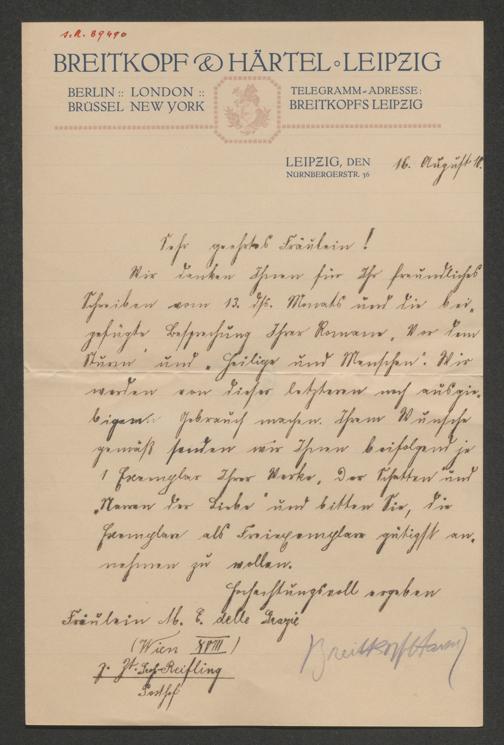 I.N. 89490
BREITKOPF & HÄRTEL ◦ LEIPZIG
BERLIN :: LONDON ::
BRÜSSEL NEW YORK
TELEGRAMM-ADRESSE:
BREITKOPFS LEIPZIG
LEIPZIG, DEN 16. August
NÜRNBERGERSTR. 36
Sehr geehrtes Fräulein!
Wir danken Ihnen für Ihr freundliches
Schreiben vom 13. ds. Monats und die bei-
gefügte Besprechung Ihrer Romane „Vor dem
Sturm" und „Heilige und Menschen". Wir
werden von dieser letzteren noch ausgie-
bigen Gebrauch machen. Ihrem Wunsche
gemäß senden wir Ihnen beifolgend je
1 Exemplar Ihrer Werke „Der Schatten" und
„Narren der Liebe" und bitten Sie, die
Exemplare als Freiexemplare gütigst an-
nehmen zu wollen.
Hochachtungsvoll ergeben
Fräulein M. E. delle Grazie
(Wien XVIII)
z. Zt. Reifling
Posthof
Breitkopf Härtel